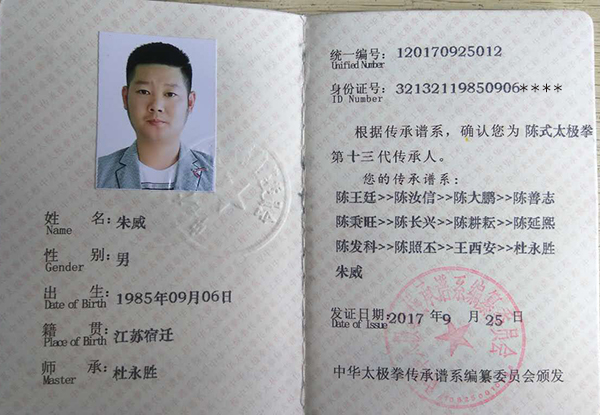 姓 名: 朱威
Name
性 别: 男
Gender
出 生: 1985年09月06日
Date of Birth
籍 贯: 江苏宿迁
Place of Birth
师 承: 杜永胜
Master
统一编号: 120170925012
Unified Number
身份证号: 32132119850906****
ID Number
根据传承谱系，确认您为 陈式太极拳
第十三代传承人。
您的传承谱系：
陈王廷>>陈汝信>>陈大鹏>>陈善志
陈秉旺>>陈长兴>>陈耕耘>>陈延熙
陈发科>>陈照丕>>王西安>>杜永胜
朱威
发证日期: 2017 年 9 月 25 日
Date of Issue
中华太极拳传承谱系编纂委员会颁发